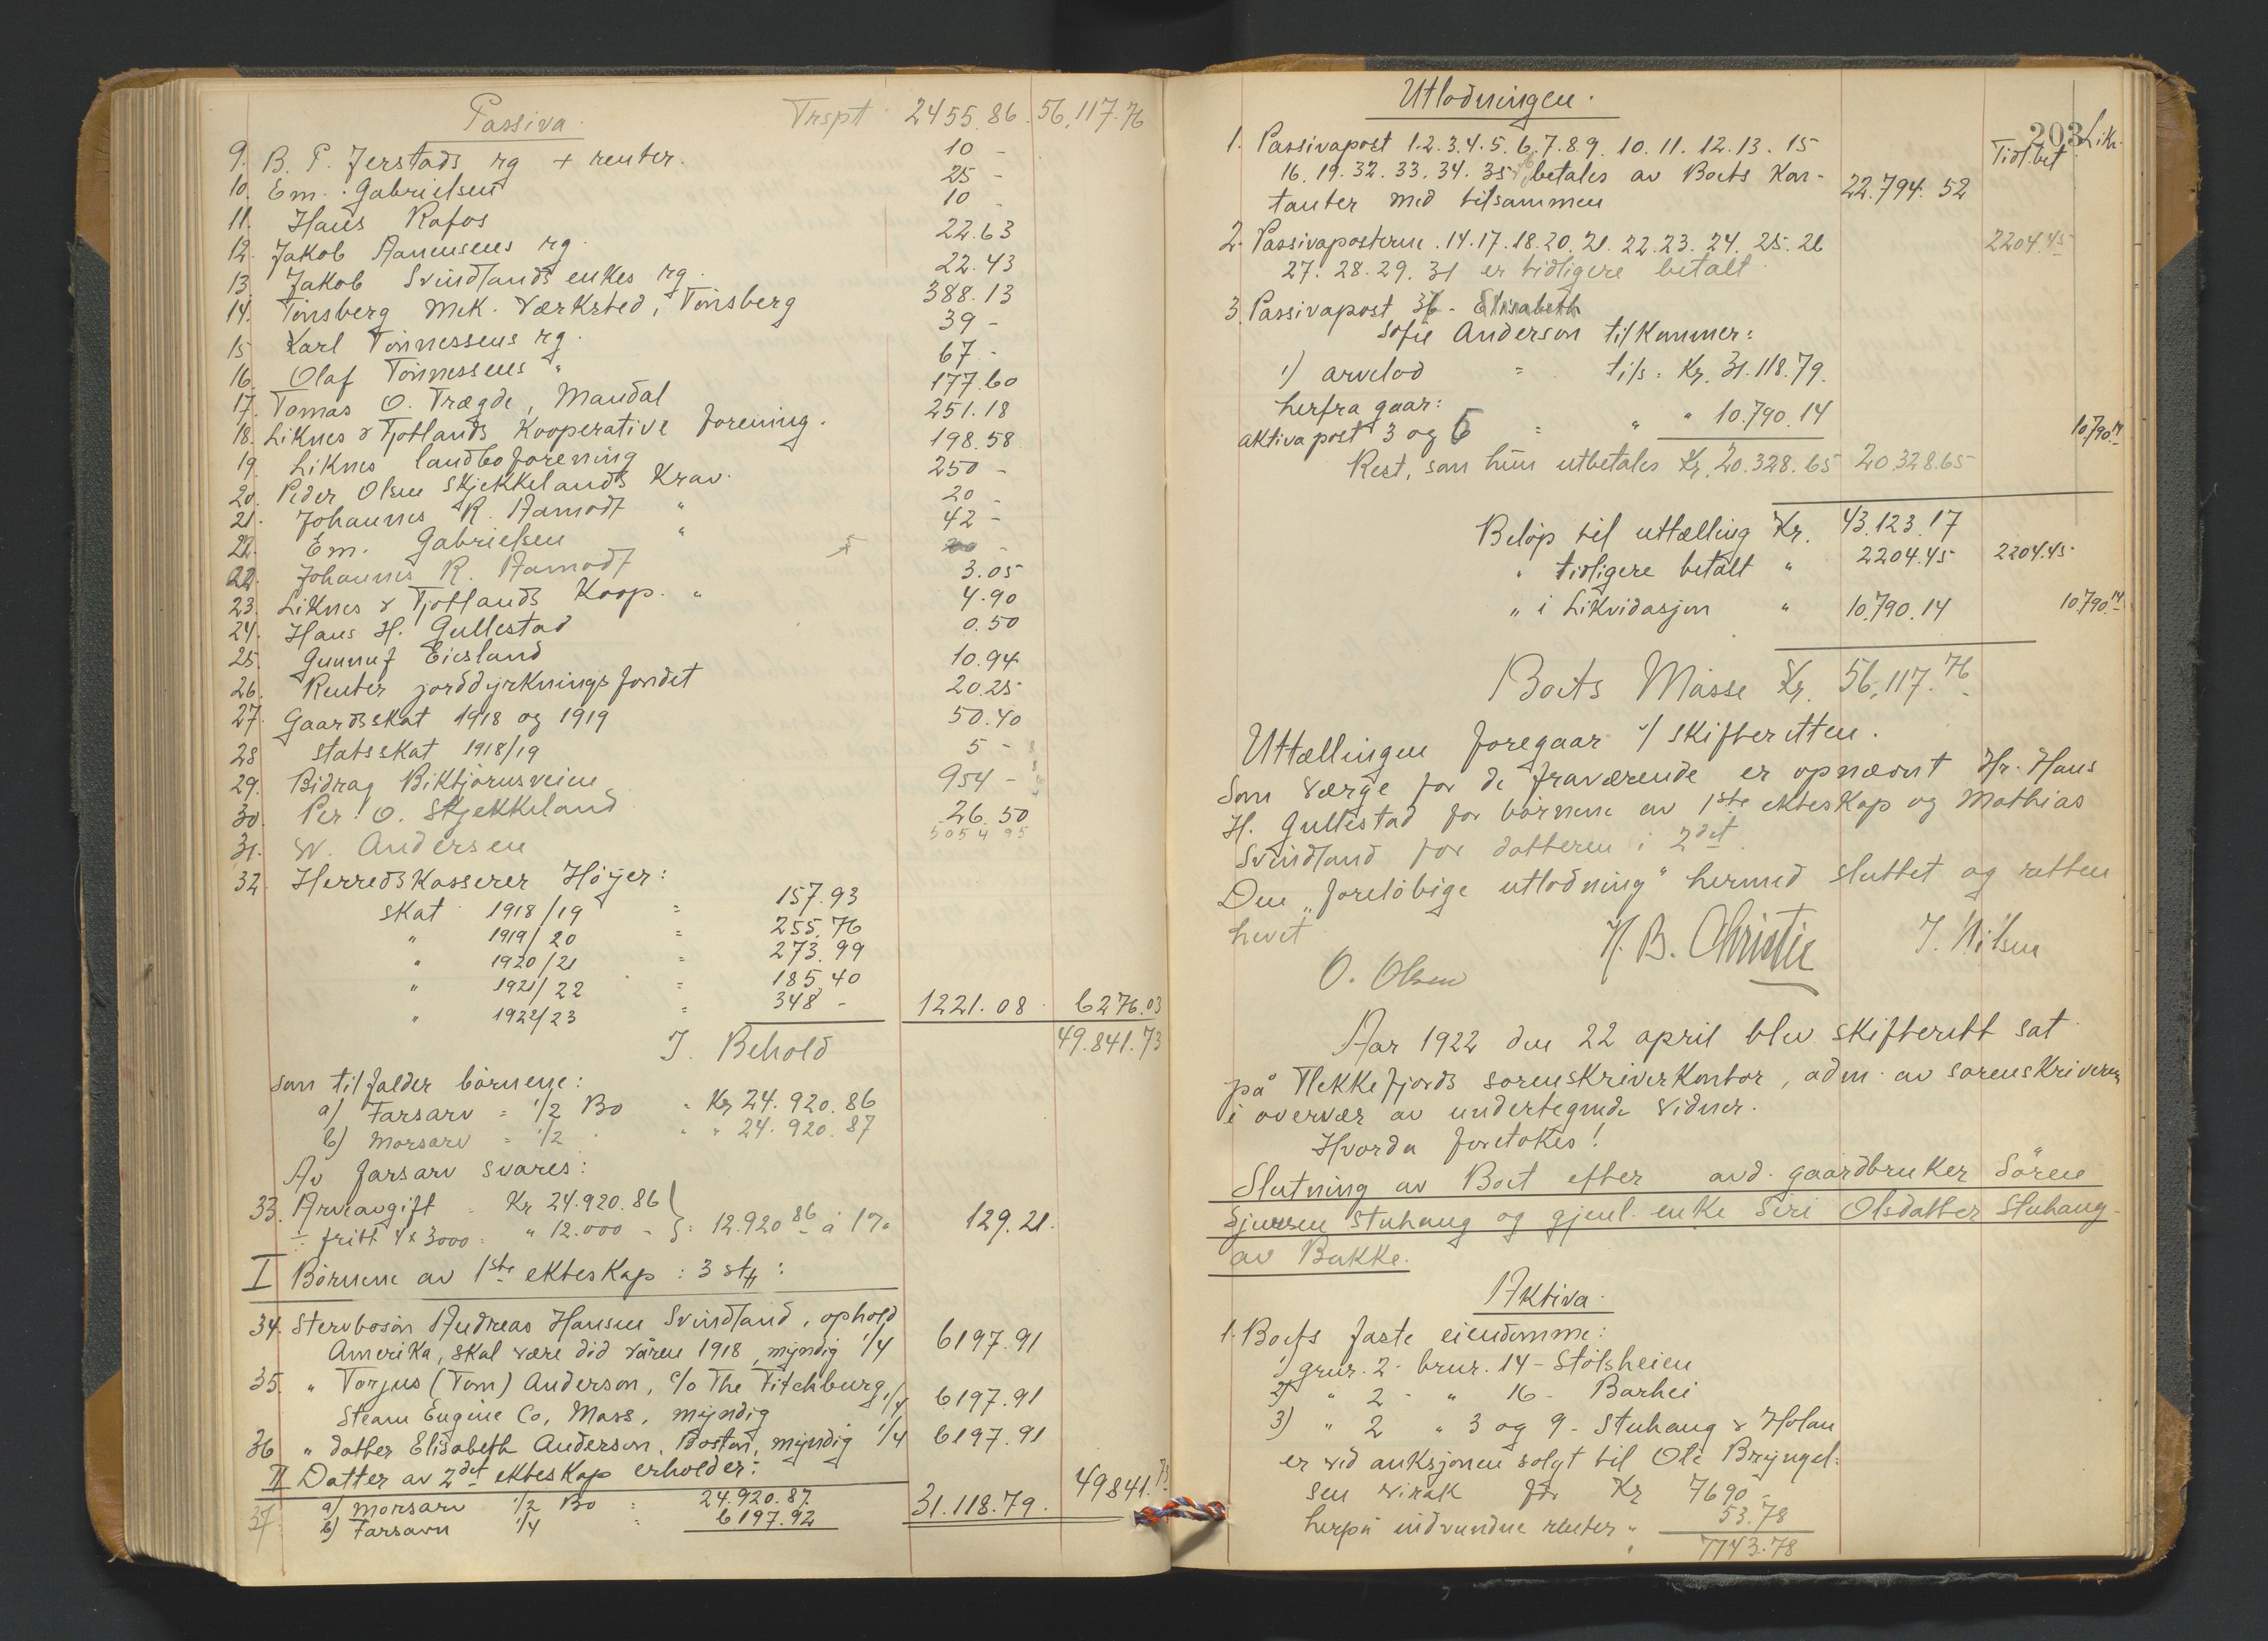 Passiva. Trspt. 2455.86. 56,117.76
9. B. P. Jerstads rg + renter. 10 -
10. Em. Gabrielsen 25 -
11. Hans Rafos 10 -
12. Jakob Aanensens rg. 22.63
13 Jakob Svindlands enkes rg. 22.43
14. Tönsberg Mek. Værksted, Tönsberg 388.13
15 Karl Tönnessens rg. 39 -
16. Olaf Tönnessens " 67 -
17. Tomas O. Trægde, Mandal 177.60
18. Liknes & Fjotlands Kooperative forening. 251.18
19. Liknes landboforening 198.58
20. Peder Olsen Skjekkelands Krav. 250 -
21. Johannes R. Aamodt " 20 -
22. Em. Gabrielsen " 42 -
22. Johannes R. Aamodt
23. Liknes & Fjotlands Koop. " 3.05
24. Hans H. Gullestad 4.90
25. Gunnuf Eiesland 0.50
26. Renter jorddyrkningsfondet 10.94
27. Gaardsskat 1918 og 1919 20.25
28 Statsskat 1918/19 50.40
29. Bidrag Biktjörnsveien 5 -
30. Per O. Skjekkeland 954 -
31. W. Andersen 26.50
5054 95
32. Herredskasserer Höyer:
Skat 1918/19 = 157.93
" 1919/20 = 255.76
" 1920/21 = 273.99
" 1921/22 = 185.40
" 1922/23 = 348 - 1221.08 6276.03
I. Behold 49.841.73
som tilfalder börnene:
a) Farsarv = 1/2 Bo " Kr 24.920.86
b) Morsarv = 1/2 " " " 24.920.87
Av farsarv svares:
33. Arveavgift = Kr 24.920.86
÷ fritt 4 x 3000 = " 12.000 - } = 12.920 86 à 1% 129.21.
I Börnene av 1ste ekteskap: 3 stk:
34. Stervbosön Andreas Hansen Svindland, ophold
Amerika, skal være död våren 1918, myndig 1/4 6197.91
35. " Torjus (Tom) Anderson, c/o The Fitchburg
Steam Engine Co, Mass, myndig 1/4 6197.91
36 " datter Elisabeth Anderson, Boston, myndig 1/4 6197.91
II Datter av 2det ekteskap erholder:
37. a) Morsarv 1/2 Bo = 24.920.87
b) Farsarv 1/4 = 6197.92 31.118.79. 49841.73
Utlodningen.
203
1. Passivapost 1.2.3.4.5.6.7.8.9.10.11.12.13.15 Tidl. bet Likv.
16.19.32.33.34.35 betales av Boets Kon-
tanter med tilsammen 22.794.52
2. Passivaposterne.14.17.18.20.21.22.23.24.25.26 2204.45
27.28.29.31 er tidligere betalt
3. Passivapost 36 - Elisabeth
Sofie Anderson tilkommer:
1) arvelod = tils: Kr. 31.118.79.
herfra gaar:
aktivapost 3 og 6 = " " 10.790.14 10790.14
Rest, som hun utbetales Kr. 20.328.65 20.328.65
Belöp til uttælling Kr. 43.123.17
" tidligere betalt " 2204.45 2204.45
" i Likvidasjon " 10.790.14 10790.14
Boets Masse Kr. 56,117.76
Uttællingen foregaar v/ skifteretten.
Som værge for de fraværende er opnævnt Hr. Hans
H. Gullestad for börnene av 1ste ekteskap og Mathias
Svindland for datteren i 2det.
Den "foreløbige utlodning" hermed sluttet og retten
hevet
O. Olsen H. B. Christie J. Nilsen
Aar 1922 den 22 april blev skifterett sat
på Flekkefjords sorenskriverkontor, adm. av sorenskriveren
i overvær av undertegnede vidner.
Hvorda foretokes!
Slutning av Boet efter avd. gaardbruker Sören
Sjursen Stuhaug og gjenl. enke Siri Olsdatter Stuhaug
av Bakke.
Aktiva.
1. Boets faste eiendomme:
1) grnr. 2 - brnr. 14 - Stölsheien
2) " 2 - " 16 - Barhei
3) " 2 " 3 og 9 - Stuhaug & Holan
er ved auksjonen solgt til Ole Bryngel-
sen Virak for Kr 7690 -
herpå indvundne renter " 53.78
" 7743.78